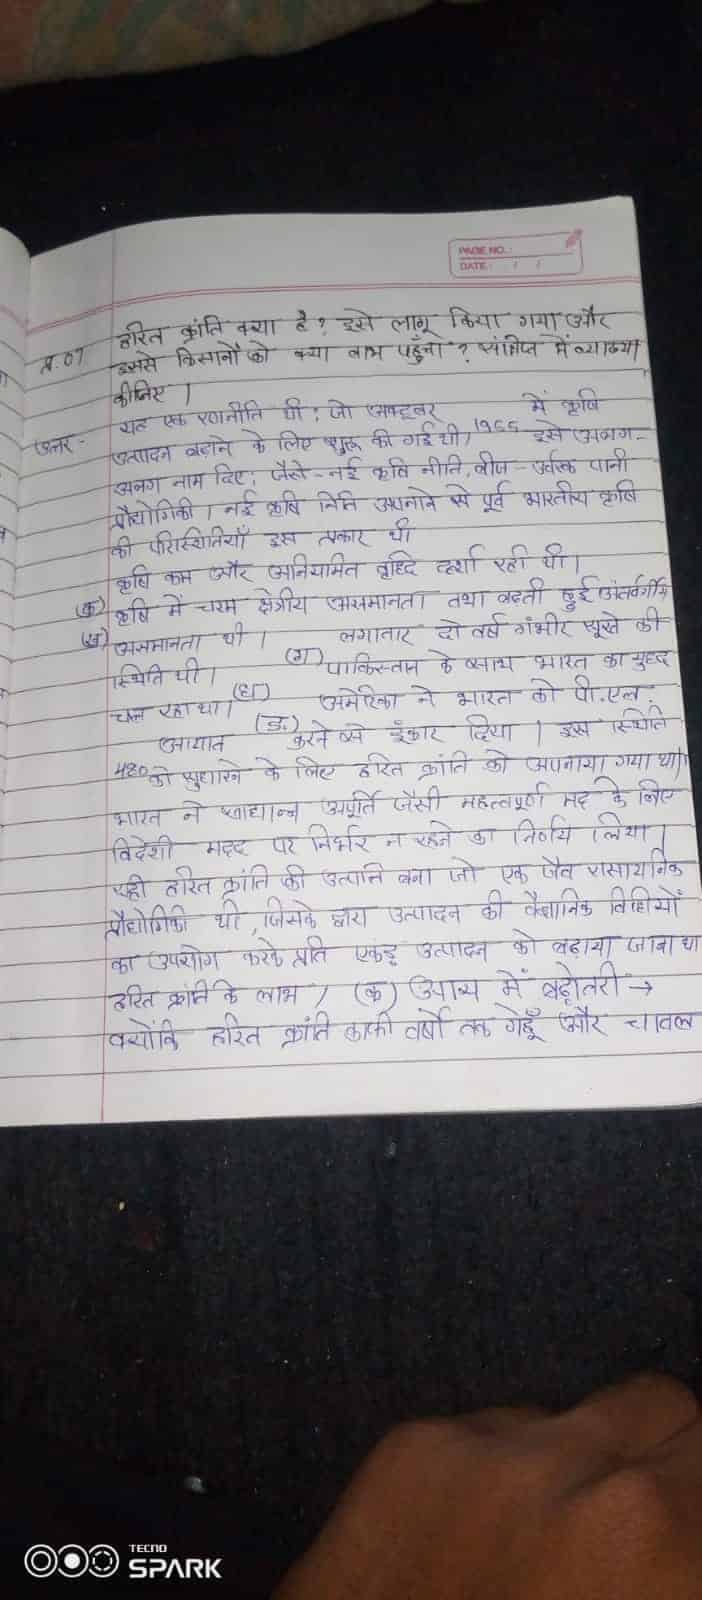 PAGE NO.:
DATE: / /
हरित क्रांति क्या है? इसे लागू किया गया और
प्र.07 इससे किसानों को क्या लाभ पहुँचा? संक्षिप्त में व्याख्या
कीजिए।
उत्तर- यह एक रणनीति थी; जो अक्टूबर 1965 में कृषि
उत्पादन बढ़ाने के लिए शुरू की गई थी। इसे अलग-
अलग नाम दिए; जैसे-नई कृषि नीति, बीज-उर्वरक पानी
प्रौद्योगिकी। नई कृषि निति अपनाने से पूर्व भारतीय कृषि
की परिस्थितियाँ इस प्रकार थी
(क) कृषि कम और अनियमित वृद्धि दर्शा रही थी।
(ख) कृषि में चरम क्षेत्रीय असमानता तथा बढ़ती हुई अंतर्वर्गीय
असमानता थी। (ग) लगातार दो वर्ष गंभीर सूखे की
स्थिति थी। (घ) पाकिस्तान के साथ भारत का युद्ध
चल रहा था। (ड.) अमेरिका ने भारत को पी.एल.
480 आयात करने से इंकार दिया। इस स्थिति
को सुधारने के लिए हरित क्रांति को अपनाया गया था।
भारत ने खाद्यान्न अपूर्ति जैसी महत्वपूर्ण मद के लिए
विदेशी मदद पर निर्भर न रहने का निर्णय लिया।
यही हरित क्रांति की उत्पत्ति बना जो एक जैव रासायनिक
प्रौद्योगिकी थी, जिसके द्वारा उत्पादन की वैज्ञानिक विधियों
का उपयोग करके प्रति एकड़ उत्पादन को बढ़ाया जाना था
हरित क्रांति के लाभ / (क) उपाय में बढ़ोतरी →
क्योंकि हरित क्रांति काफी वर्षों तक गेहूँ और चावल
TECNO
SPARK